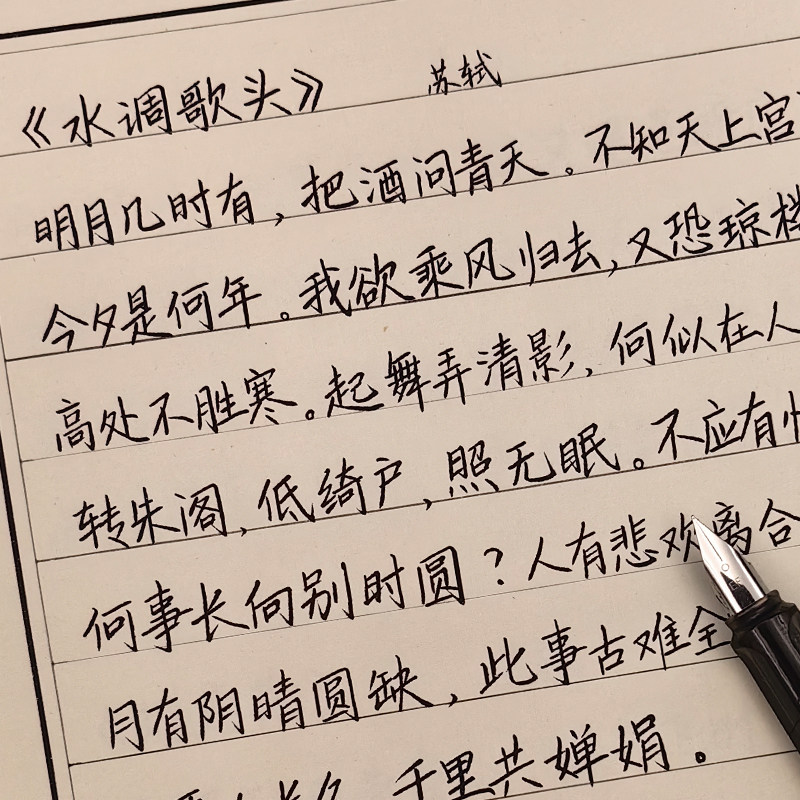 《水调歌头》 苏轼
明月几时有，把酒问青天。不知天上宫
今夕是何年。我欲乘风归去，又恐琼楼
高处不胜寒。起舞弄清影，何似在人
转朱阁，低绮户，照无眠。不应有
何事长向别时圆？人有悲欢离合
月有阴晴圆缺，此事古难全
长久 千里共婵娟。